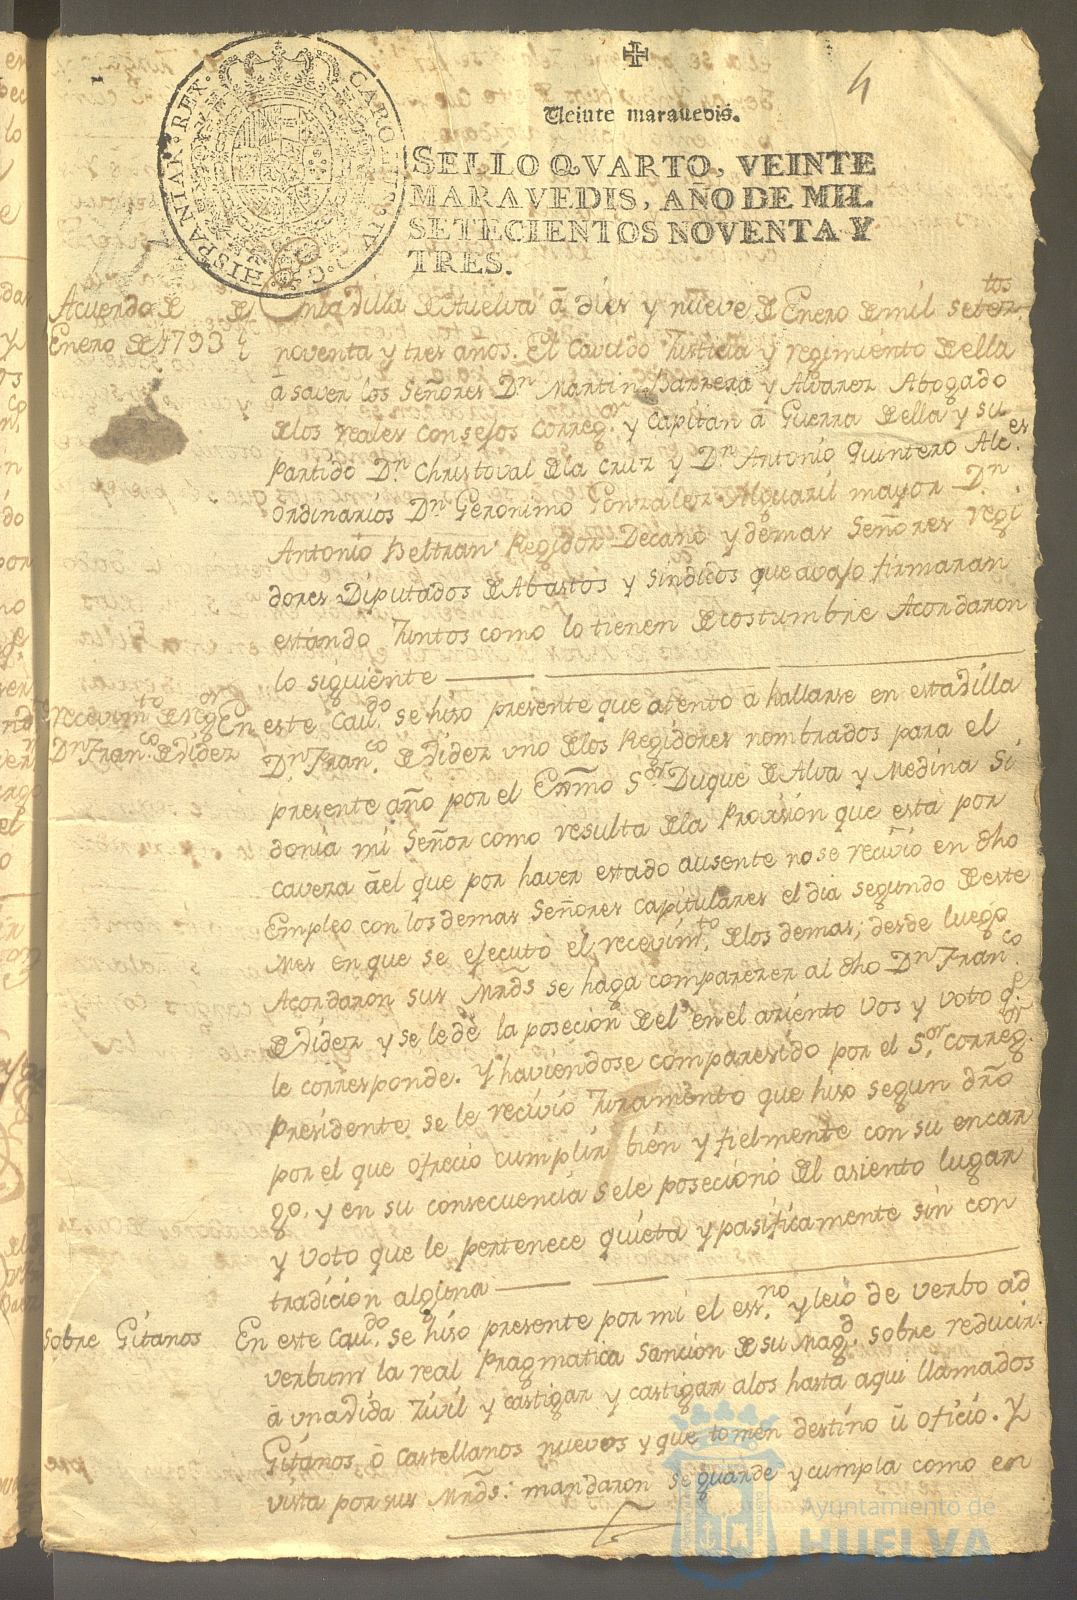 4
Veinte maravedis.
SELLO QVARTO, VEINTE
MARAVEDIS, AÑO DE MIL
SETECIENTOS NOVENTA Y
TRES.
CAROLUS IV D. G. HISPANIAR. REX.
Acuerdo de
Enero de 1793
En la Villa de Huelva á dies y nueve de Enero de mil setestos
noventa y tres años. El Cavildo Justicia y regimiento de ella
a saver los Señores Dn Martin Barrera y Alvarez Abogado
de los reales Consejos Correg.or y Capitan á Guerra de ella y su
Partido Dn Christoval de la Cruz y Dn Antonio Quintero Alc.es
ordinarios Dn Geronimo Gonzalez Alguazil mayor Dn
Antonio Beltran Regidor Decano y demas Señores regi
dores Diputados de Abastos y Sindicos que avajo firmaran
estando Juntos como lo tienen de costumbre Acordaron
lo siguiente
recevim.to de Reg.or
Dn Fran.co de Videz
En este Cav.do se hiso presente que atento a hallarse en esta Villa
Dn Fran.co de Videz uno de los Regidores nombrados para el
presente año por el Exmo S.or Duque de Alva y Medina Si
donia mi Señor como resulta de la Provision que está por
cavera á el que por haver estado ausente no se recivió en dho
Empleo con los demas Señores capitulares el dia segundo de este
Mes en que se ejecutó el recevim.to de los demas; desde luego
Acordaron sus Mrds se haga comparerer al dho Dn Fran.co
de Videz y se le dé la poseción de el en el asiento vos y voto q.e
le corresponde. Y haviendose comparesido por el S.or Correg.or
Presidente se le recivió Juramento que hiso segun dro
por el que ofrecio cumplir bién y fielmente con su encar
go, y en su consecuencia se le posecionó del asiento lugar
y voto que le pertenece quieta y pasificamente sin con
tradición alguna
Sobre Gitanos
En este Cav.do se hiso presente por mi el ess.no y leio de verbo ad
verbum la real Pragmatica Sanción de su Mag.d sobre reducir
á una vida Zivil y castigar y castigar a los hasta aqui llamados
Gitanos ó Castellanos nuevos y que tomen destino ú oficio. Y
vista por sus Mrds: mandaron se guarde y cumpla como en
Ayuntamiento de
HUELVA